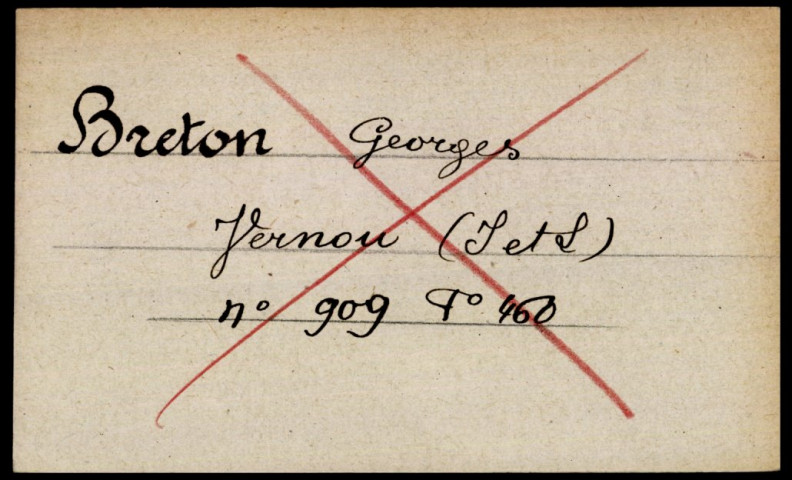 Breton Georges
Vernou (I et L)
n° 909 F° 460